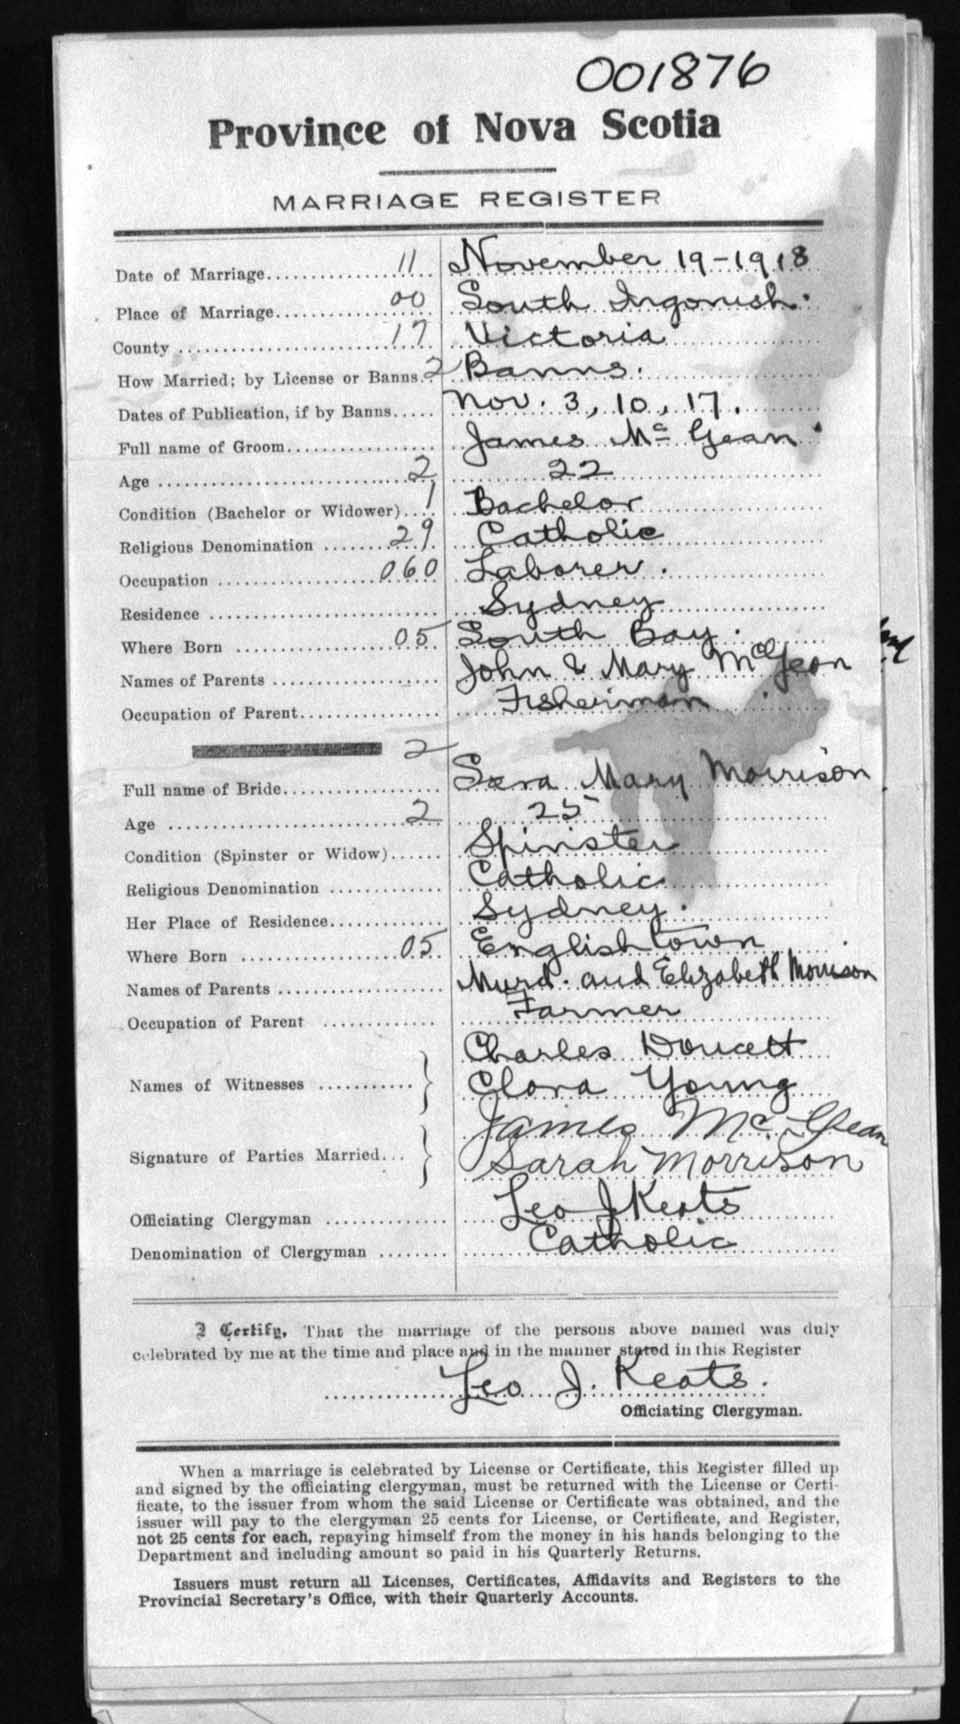 001876
Province of Nova Scotia
MARRIAGE REGISTER
Date of Marriage 11 November 19-1918
Place of Marriage 00 South Ingonish.
County 17 Victoria
How Married; by License or Banns 2 Banns.
Dates of Publication, if by Banns Nov. 3, 10, 17.
Full name of Groom James Mc Gean
Age 2 22
Condition (Bachelor or Widower) 1 Bachelor
Religious Denomination 29 Catholic
Occupation 060 Laborer.
Residence Sydney
Where Born 05 South Bay.
Names of Parents John & Mary McGean
Occupation of Parent Fisherman
2
Full name of Bride Sara Mary Morrison
Age 2 25
Condition (Spinster or Widow) Spinster
Religious Denomination Catholic
Her Place of Residence Sydney.
Where Born 05 Englishtown
Names of Parents Murd. and Elizabeth Morrison
Occupation of Parent Farmer
Charles Doucett
Names of Witnesses } Clara Young
James Mc. Gean
Signature of Parties Married } Sarah Morrison
Officiating Clergyman Leo J Keats
Denomination of Clergyman Catholic
I Certify, That the marriage of the persons above named was duly
celebrated by me at the time and place and in the manner stated in this Register
Leo J. Keats.
Officiating Clergyman.
When a marriage is celebrated by License or Certificate, this Register filled up
and signed by the officiating clergyman, must be returned with the License or Certi-
ficate, to the issuer from whom the said License or Certificate was obtained, and the
issuer will pay to the clergyman 25 cents for License, or Certificate, and Register,
not 25 cents for each, repaying himself from the money in his hands belonging to the
Department and including amount so paid in his Quarterly Returns.
Issuers must return all Licenses, Certificates, Affidavits and Registers to the
Provincial Secretary's Office, with their Quarterly Accounts.